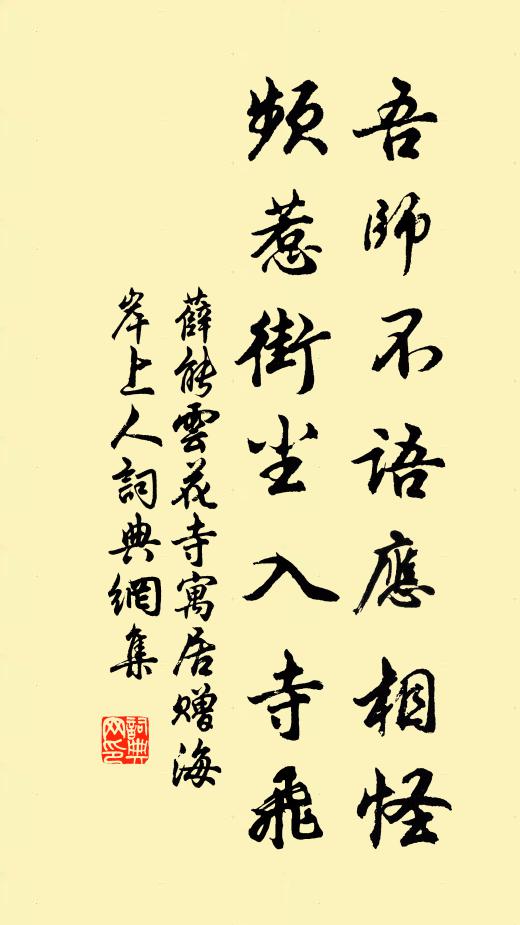 吾師不語應相怪
頻惹街尘入寺飛
薛能雲花寺寓居贈海
岸上人詞典網集
詞典
网印